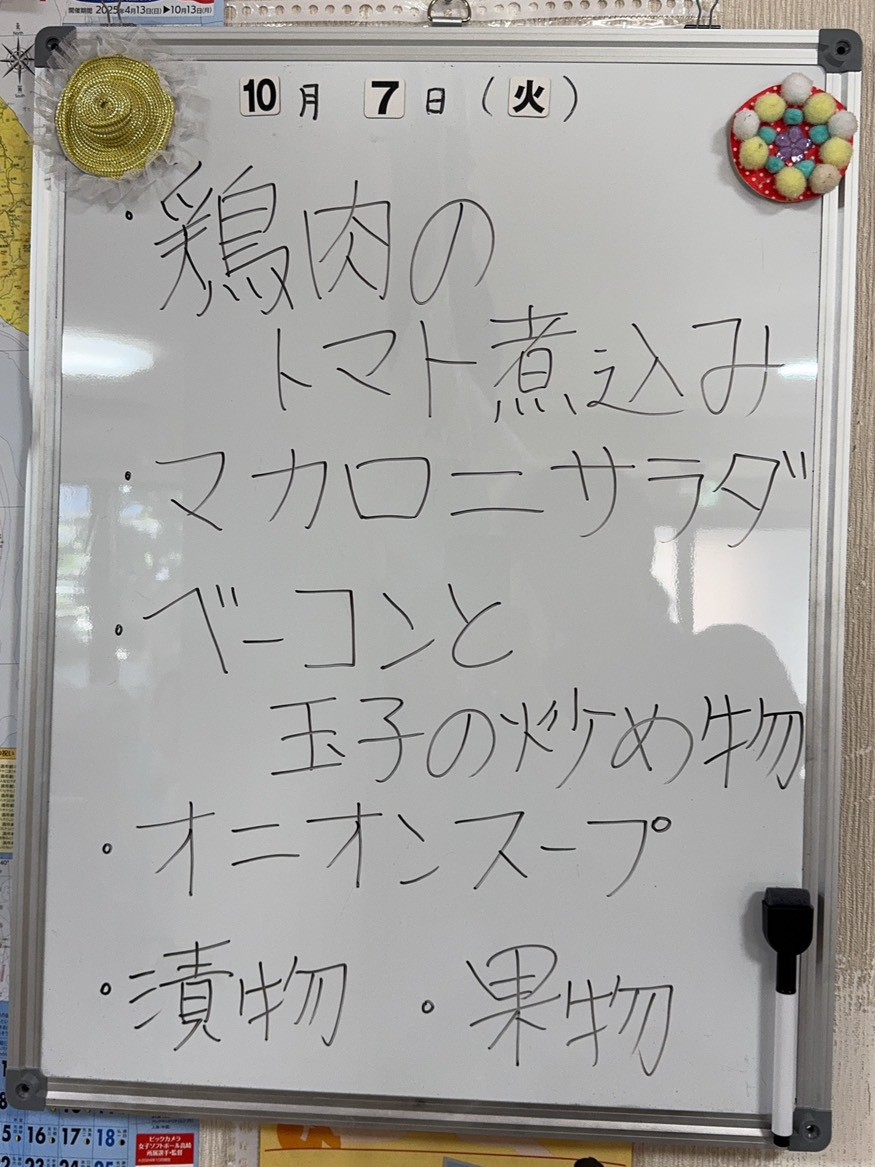 開催期間 2025年4月13日(日)▶10月13日(月)
10月 7日(火)
・鶏肉の
トマト煮込み
・マカロニサラダ
・ベーコンと
玉子の炒め物
・オニオンスープ
・漬物 ・果物
15 16 17 18
ビックカメラ
女子ソフトボール高崎
所属選手・監督